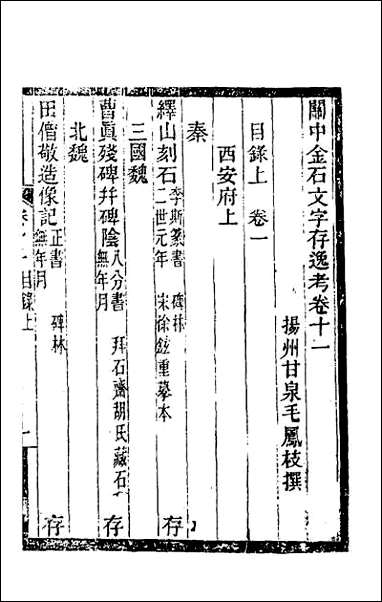 關中金石文字存逸考卷十一
揚州甘泉毛鳳枝撰
目錄上 卷一
西安府上
秦
繹山刻石 李斯篆書 碑林
二世元年 宋徐鉉重摹本 存
三國魏
曹眞殘碑幷碑陰 八分書 拜石齋胡氏藏石
無年月 存
北魏
田僧敬造像記 正書 碑林
無年月 存
目錄上
一